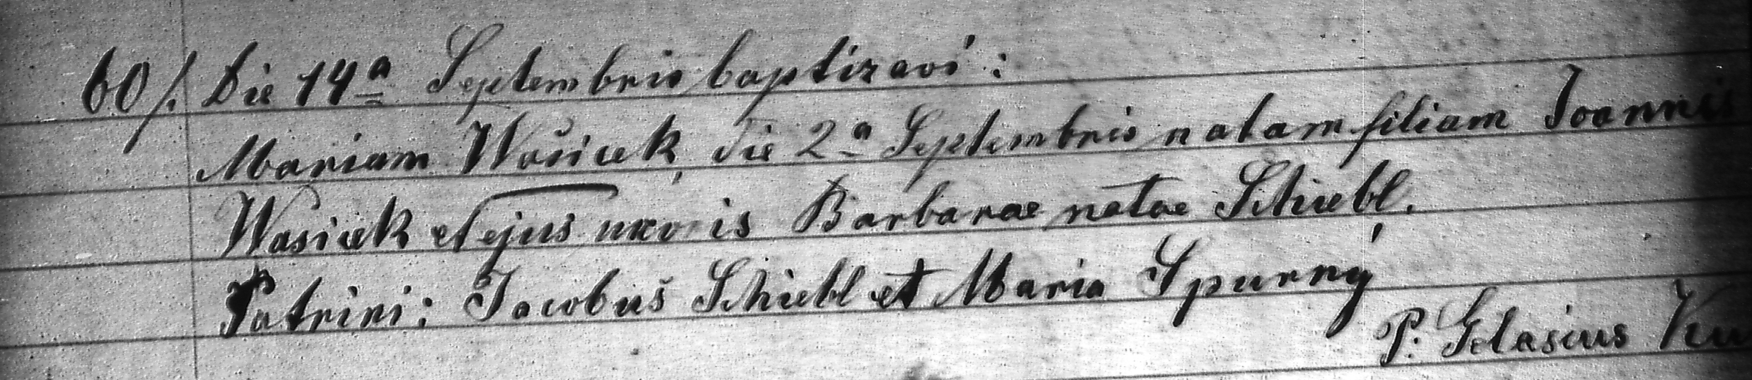 60/. Die 14a Septembris baptizavi:
Mariam Wašicek, die 2a Septembris natam filiam Joannis
Wasicek et ejus uxoris Barbarae natae Schiebl.
Patrini: Jacobus Schiebl et Maria Spurný
P. Gelasius